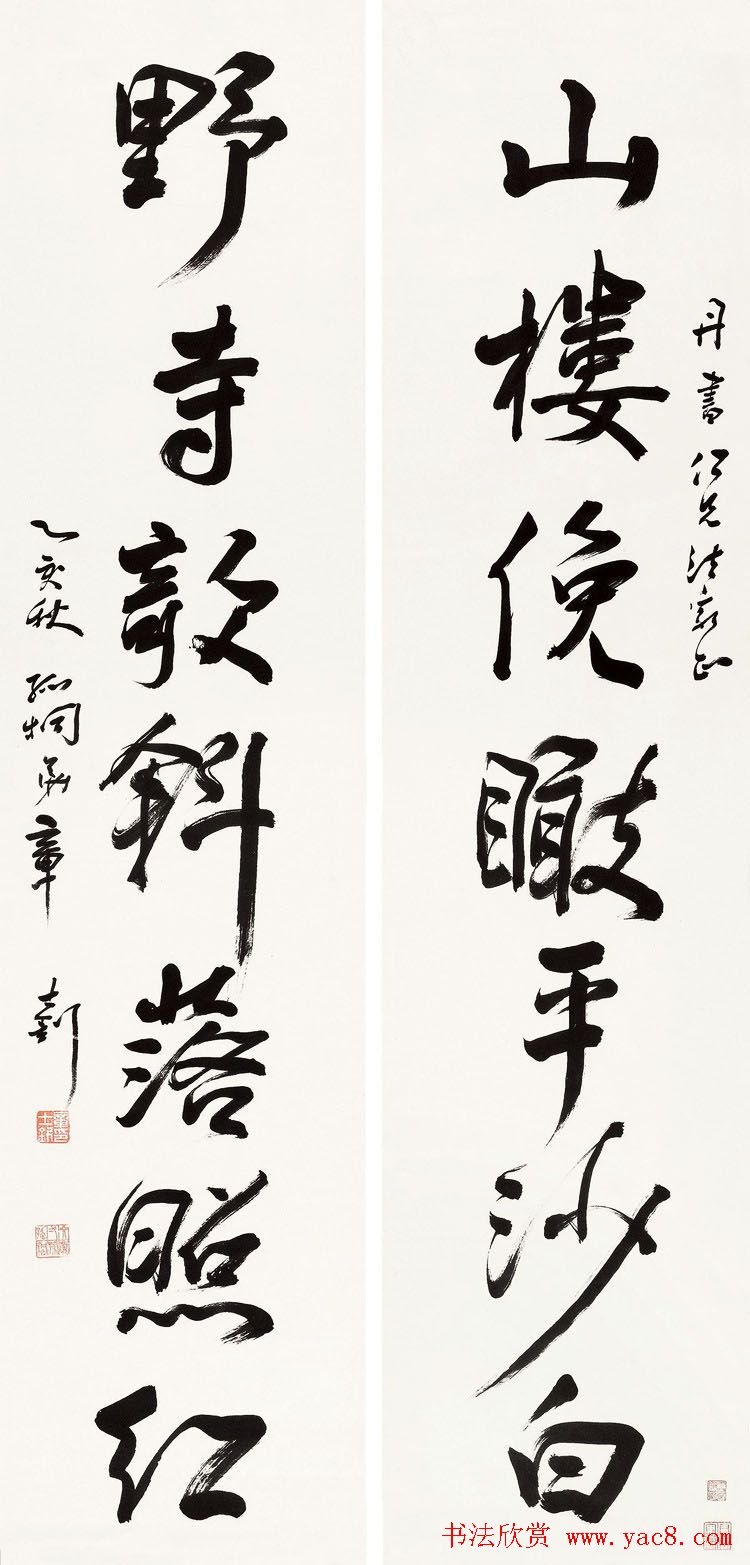 丹書仁兄法家正
山樓俛瞰平沙白
野寺欹斜落照紅
乙亥秋 孤桐弟章士釗
书法欣赏 www.yac8.com